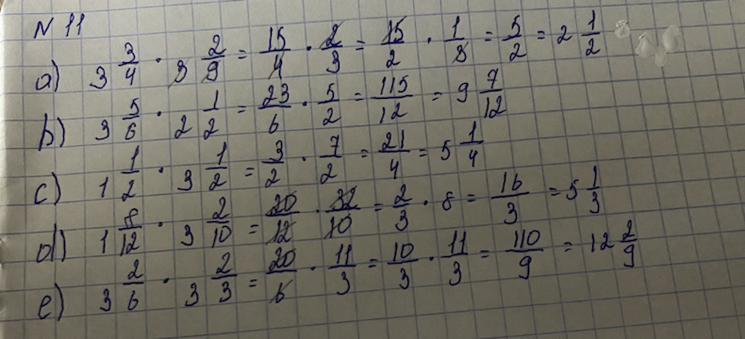 N 11
a) 3 3/4 · 3 2/9 = 15/4 · 2/3 = 15/2 · 1/3 = 5/2 = 2 1/2
b) 3 5/6 · 2 1/2 = 23/6 · 5/2 = 115/12 = 9 7/12
c) 1 1/2 · 3 1/2 = 3/2 · 7/2 = 21/4 = 5 1/4
d) 1 8/12 · 3 2/10 = 20/12 · 32/10 = 2/3 · 8 = 16/3 = 5 1/3
e) 3 2/6 · 3 2/3 = 20/6 · 11/3 = 10/3 · 11/3 = 110/9 = 12 2/9